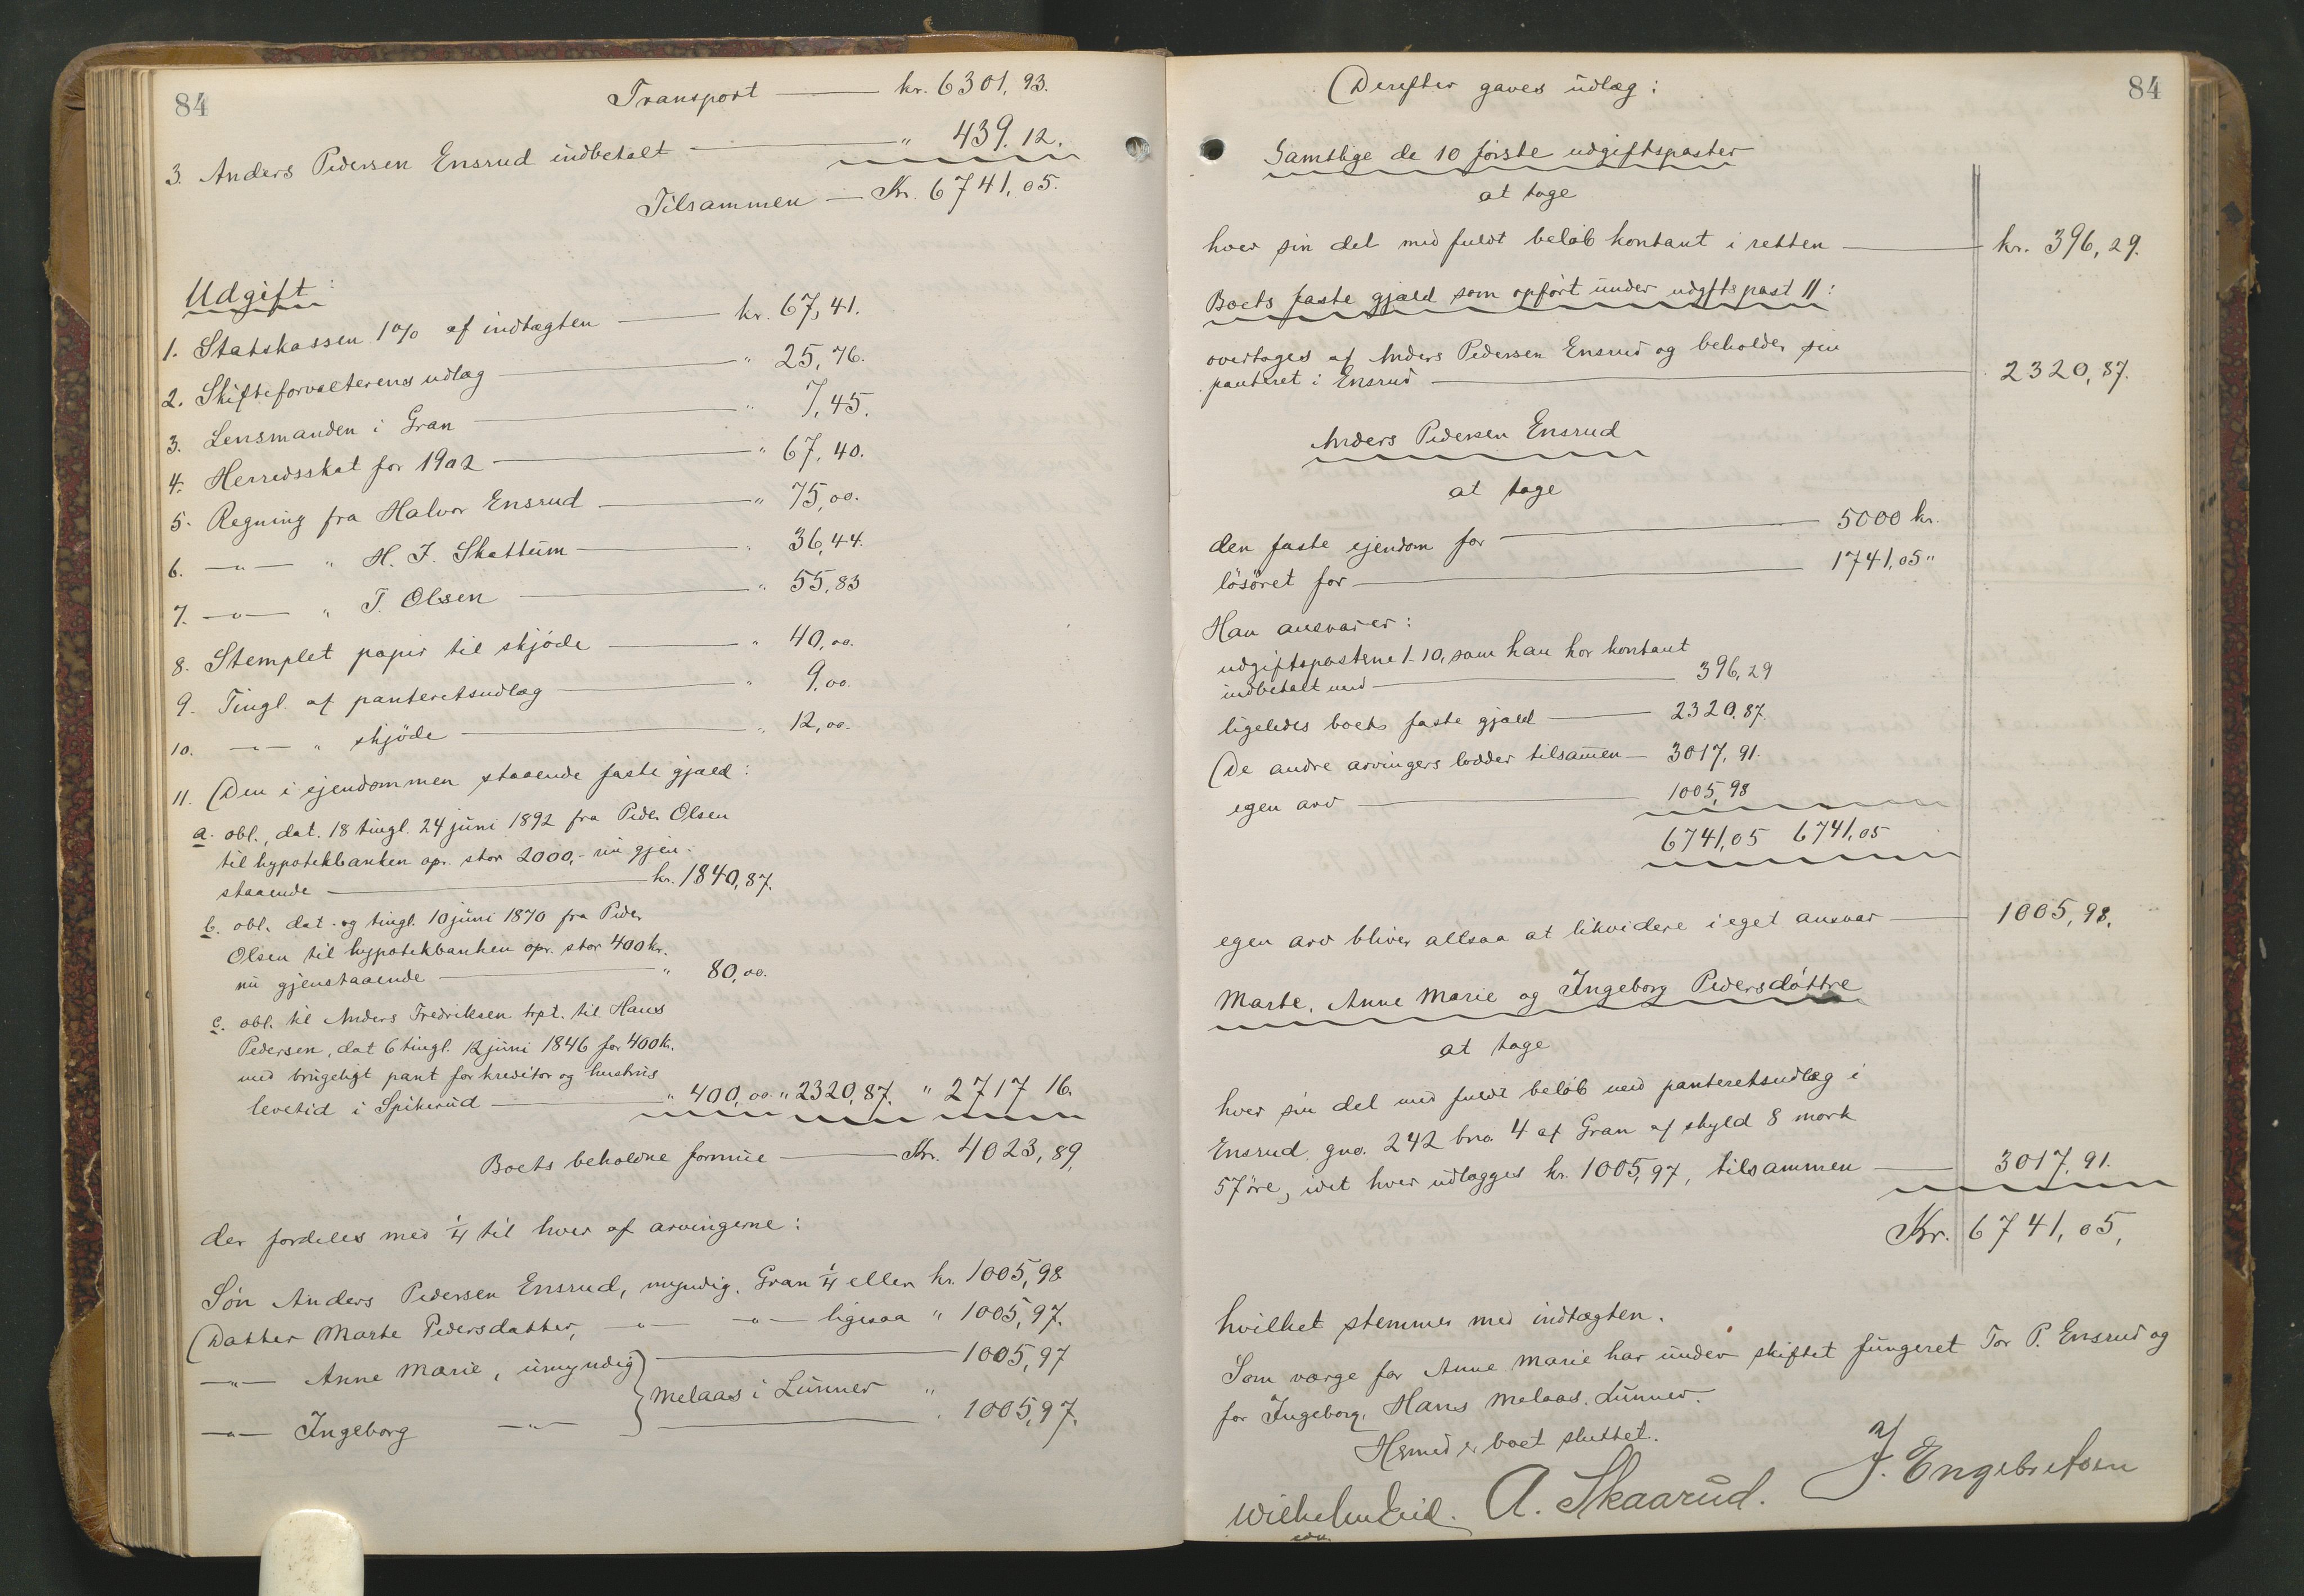 84
Transport — kr. 6301,93.
3. Anders Pedersen Ensrud indbetalt — " 439.12.
Tilsammen — Kr. 6741,05.
Udgift:
1. Statskassen 1% af indtægten — kr. 67,41.
2. Skifteforvalterens udlæg — " 25,76.
3. Lensmanden i Gran — " 7,45.
4. Herredsskat for 1902 — " 67,40.
5. Regning fra Halvor Ensrud — " 75,00.
6. —"— " H. J. Skattum — " 36,44.
7. —"— " T. Olsen — " 55,83
8. Stemplet papir til skjöde — " 40,00.
9. Tingl. af panteretsudlæg — " 9,00.
10. —"— " skjöde — " 12,00.
11. Den i ejendommen staaende faste gjæld:
a. obl., dat. 18 tingl. 24 juni 1892 fra Peder Olsen
til hypotekbanken opr. stor 2000,- nu gjen-
staaende — kr. 1840,87.
b. obl. dat. og tingl. 10 juni 1870 fra Peder
Olsen til hypotekbanken opr. stor 400 kr.
nu gjenstaaende — " 80,00.
c. obl. til Anders Fredriksen trpt. til Hans
Pedersen, dat 6 tingl. 12 juni 1846 for 400 kr.
med brugeligt pant for kreditor og hustrus
levetid i Spikerud — " 400,00. " 2320,87. " 2717 16.
Boets beholdne formue — Kr. 4023,89,
der fordeles med 1/4 til hver af arvingerne:
Sön Anders Pedersen Ensrud, myndig, Gran 1/4 eller kr. 1005,98
Datter Marte Pedersdatter, —"— —"— ligesaa " 1005,97.
—"— Anne Marie, umyndig — 1005,97
} Melaas i Lunner "
—"— Ingeborg —"— — " 1005,97.
84
Derefter gaves udlæg:
Samtlige de 10 förste udgiftsposter
at tage
hver sin del med fuldt belöb kontant i retten — kr. 396,29.
Boets faste gjæld som opfört under udgiftspost 11:
overtages af Anders Pedersen Ensrud og beholder sin
panteret i Ensrud — 2320,87.
Anders Pedersen Ensrud
at tage
den faste ejendom for — 5000 kr.
lösöret for — 1741,05 "
Han ansvarer:
udgiftsposterne 1-10, som han har kontant
indbetalt med — 396,29
ligeledes boets faste gjæld — 2320,87.
De andre arvingers lodder tilsammen — 3017,91.
egen arv — 1005,98
6741,05 6741,05
egen arv bliver altsaa at likvidere i eget ansvar — 1005,98.
Marte, Anne Marie og Ingeborg Pedersdöttre
at tage
hver sin del med fuldt belöb med panteretsudlæg i
Ensrud, gno. 242 bno. 4 af Gran af skyld 8 mark
57 öre, idet hver udlægges kr. 1005,97, tilsammen — 3017,91.
Kr. 6741,05,
hvilket stemmer med indtægten.
Som værge for Anne Marie har under skiftet fungeret Tor P. Ensrud og
for Ingeborg, Hans Melaas, Lunner.
Hermed er boet sluttet.
Wilhelm Eid. A. Skaarud. J. Engebretsen